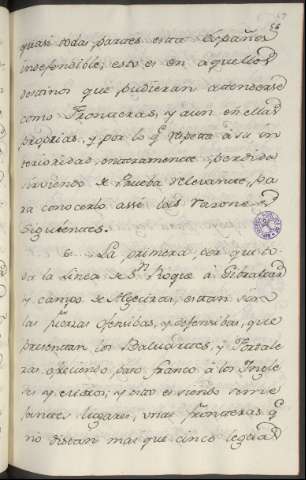 quasi todas partes está España
indefendible, esto es en aquellos
destinos que pudieran atenderse
como Fronteras, y aun en ellas
proprias, y por lo q.e respeta à su in
terioridad, enteramente perdida
sirviendo de Prueba relevante, pa
ra conocerlo assí las razones
siguientes.
6. La primera ser que to
da la linea de S.n Roque á Gibraltar
y campo de Algeciras, estan sin
las Piezas ofensibas, y defensibas, que
presentan los Baluartes, y Fortale
zas ofreciendo paso franco á los Ingle
ses y exteriores; y esto es siendo seme
jantes lugares, unas fronteras q.e
no distan mas que cinco leguas